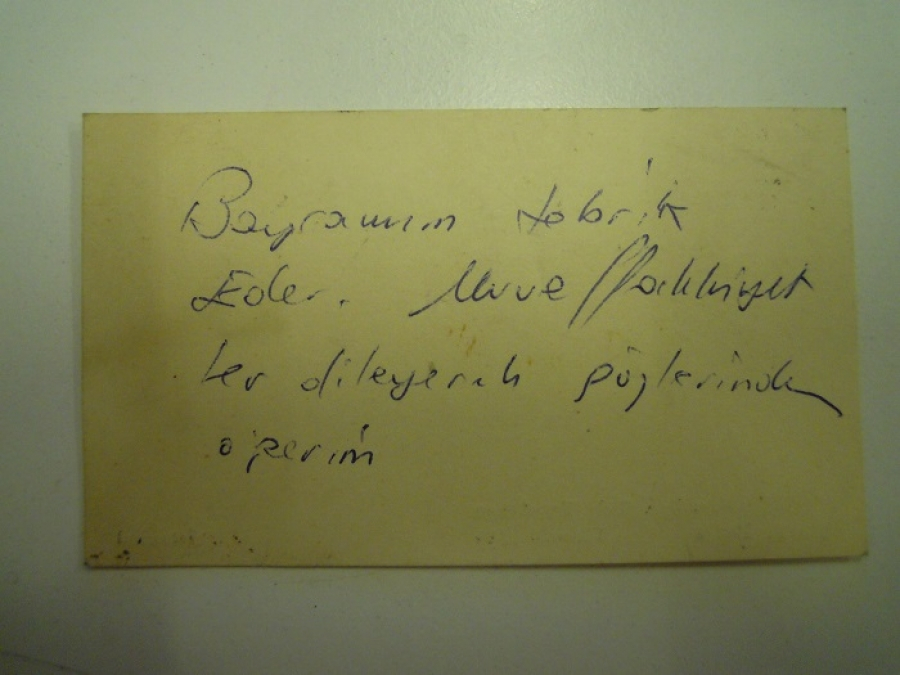 Bayramını tebrik
Eder. Muvaffakkiyet
ler dileyerek gözlerinden
öperim